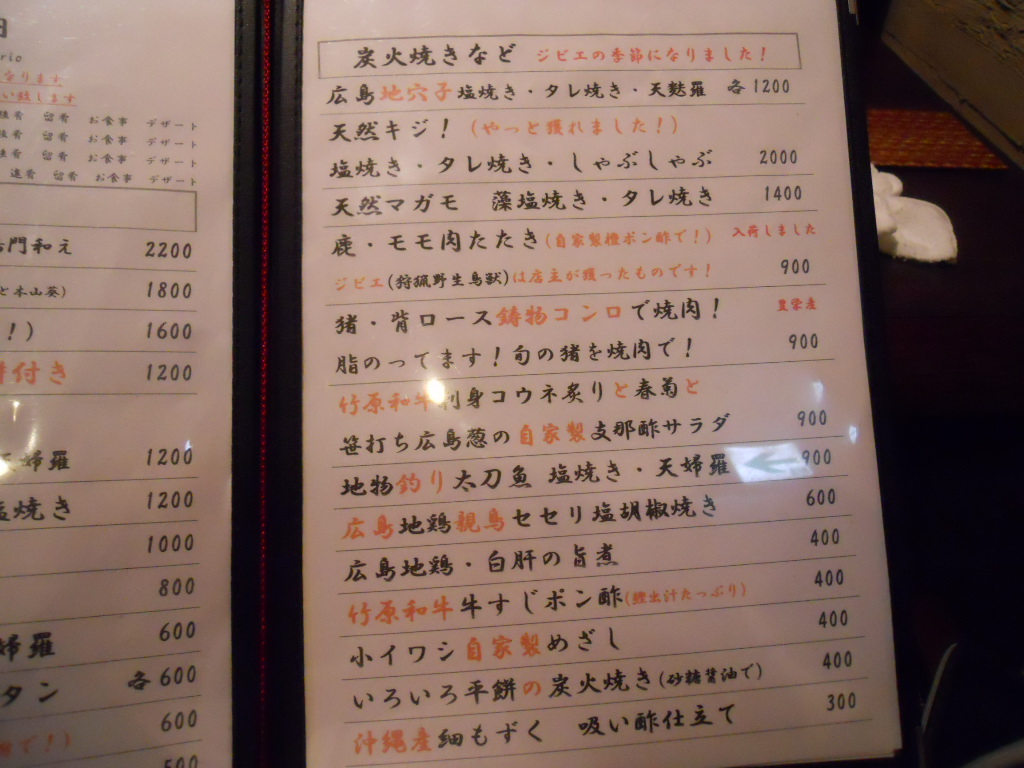 rio
なります
い致します
留肴 お食事 デザート
留肴 お食事 デザート
留肴 お食事 デザート
進肴 留肴 お食事 デザート
門和え 2200
と本山葵) 1800
！) 1600
付き 1200
天婦羅 1200
塩焼き 1200
1000
800
婦羅 600
タン 各600
600
で！)
500
炭火焼きなど ジビエの季節になりました！
広島地穴子塩焼き・タレ焼き・天麩羅 各1200
天然キジ！(やっと獲れました！)
塩焼き・タレ焼き・しゃぶしゃぶ 2000
天然マガモ 藻塩焼き・タレ焼き 1400
鹿・モモ肉たたき(自家製橙ポン酢で！) 入荷しました
ジビエ(狩猟野生鳥獣)は店主が獲ったものです！ 900
猪・背ロース鋳物コンロで焼肉！ 豊栄産
脂のってます！旬の猪を焼肉で！ 900
竹原和牛刺身コウネ炙りと春菊と
笹打ち広島葱の自家製支那酢サラダ 900
地物釣り太刀魚 塩焼き・天婦羅 900
広島地鶏親鳥セセリ塩胡椒焼き 600
広島地鶏・白肝の旨煮 400
竹原和牛牛すじポン酢(鰹出汁たっぷり) 400
小イワシ自家製めざし 400
いろいろ平餅の炭火焼き(砂糖醤油で) 400
沖縄産細もずく 吸い酢仕立て 300